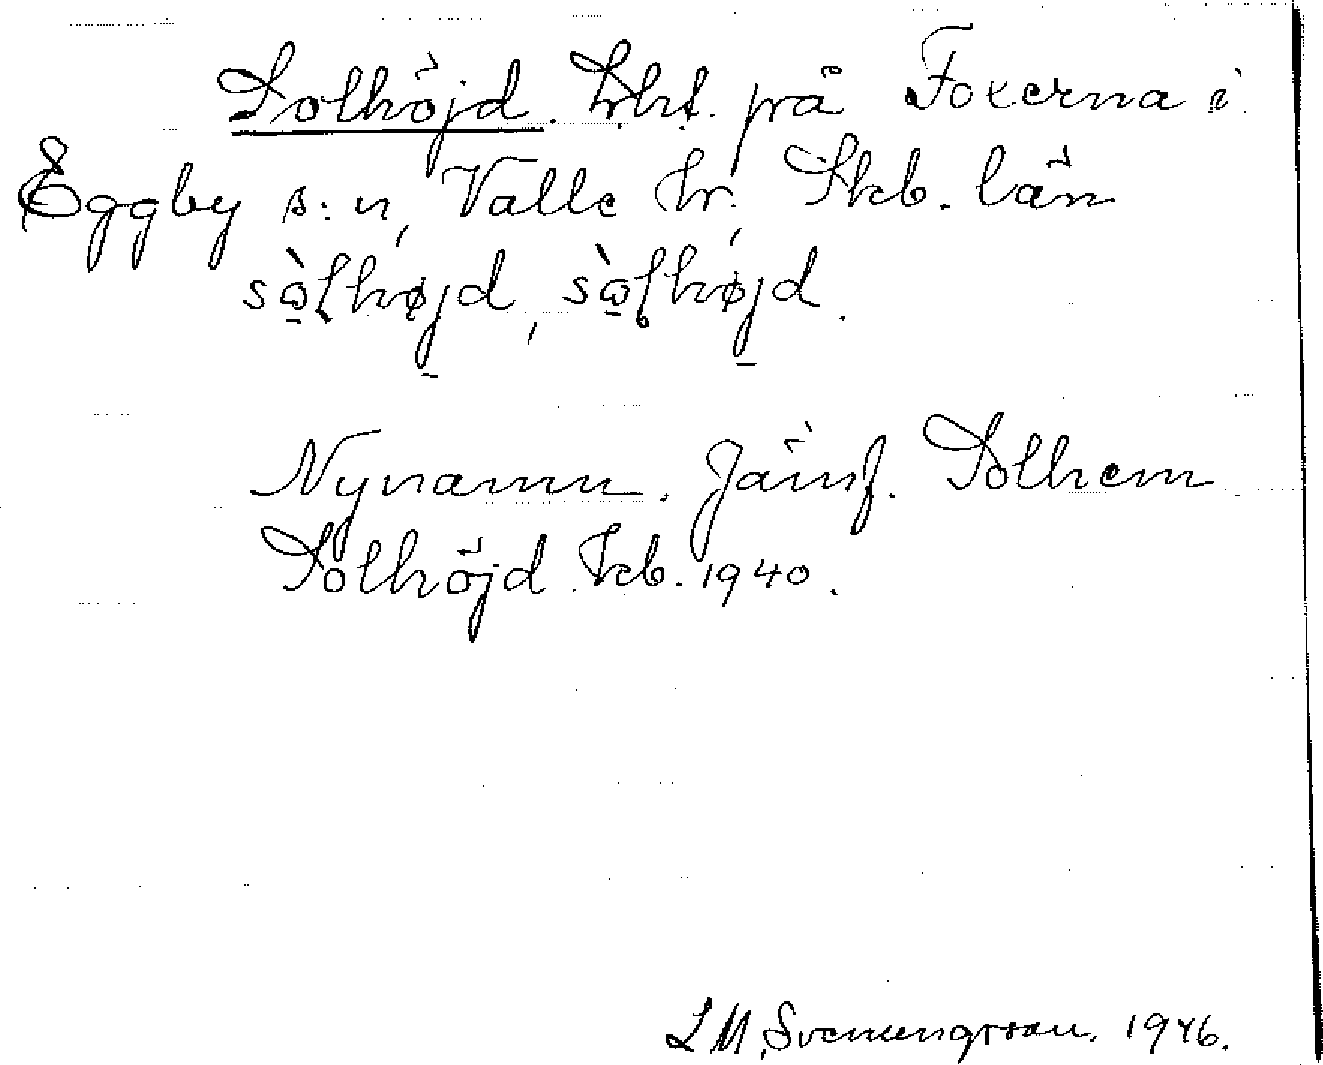 Solhöjd. Lht. på Foxerna i
Eggby s:n, Valle hr, Skb. län
sòlhøjd, sòlhøjd.
Nynamn. Jämf. Solhem
Solhöjd Vcb. 1940.
L M, Svenungsson. 1946.